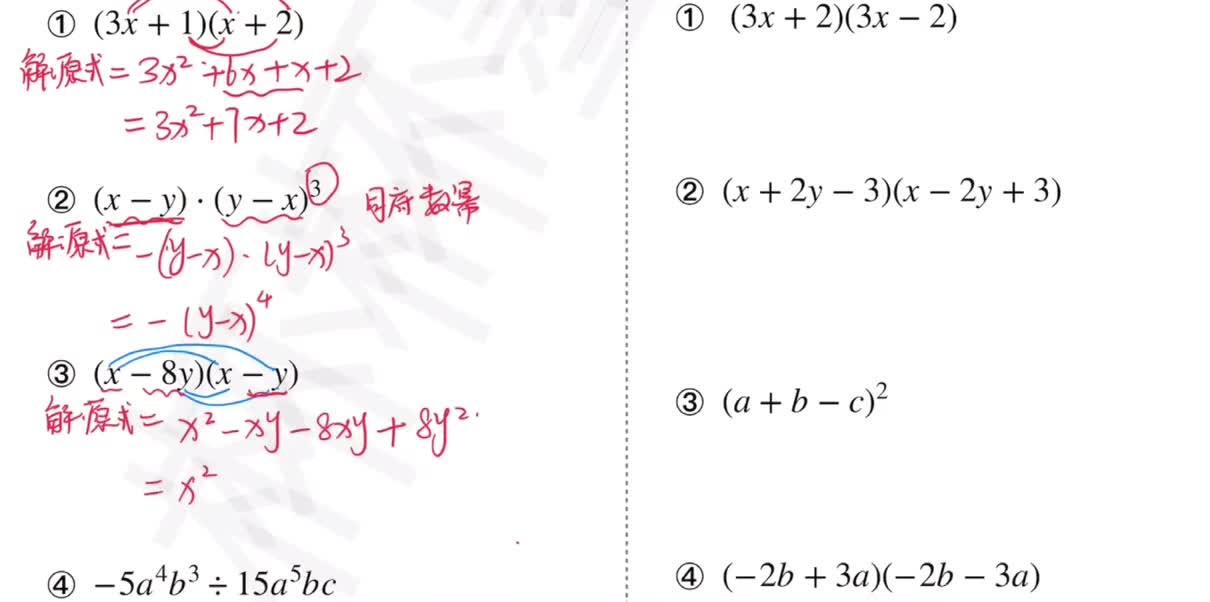 ① (3x + 1)(x + 2)
解:原式 = 3x² + 6x + x + 2
= 3x² + 7x + 2
② (x − y) · (y − x)³ 同底数幂
解:原式 = −(y−x) · (y−x)³
= −(y−x)⁴
③ (x − 8y)(x − y)
解:原式 = x² − xy − 8xy + 8y².
= x²
④ −5a⁴b³ ÷ 15a⁵bc
① (3x + 2)(3x − 2)
② (x + 2y − 3)(x − 2y + 3)
③ (a + b − c)²
④ (−2b + 3a)(−2b − 3a)